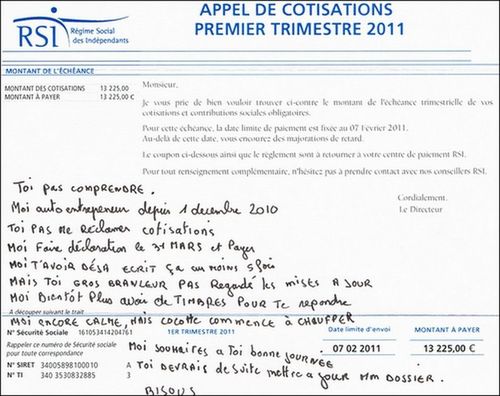 APPEL DE COTISATIONS
PREMIER TRIMESTRE 2011
RSI Régime Social des Indépendants
MONTANT DE L'ÉCHÉANCE
MONTANT DES COTISATIONS 13 225,00
MONTANT À PAYER 13 225,00 €
Monsieur,
Je vous prie de bien vouloir trouver ci-contre le montant de l'échéance trimestrielle de vos
cotisations et contributions sociales obligatoires.
Pour cette échéance, la date limite de paiement est fixée au 07 Février 2011.
Au-delà de cette date, vous encourez des majorations de retard.
Le coupon ci-dessous ainsi que le règlement sont à retourner à votre centre de paiement RSI.
Pour tout renseignement complémentaire, n'hésitez pas à prendre contact avec nos conseillers RSI.
Cordialement.
Le Directeur
Toi pas comprendre.
Moi auto entrepeneur depuis 1 decembre 2010
Toi PAS me Réclamer cotisations
Moi Faire déclaration le 31 MARS et Payer
Moi T'avoir DÉJA ECRIT ça au moins 5 fois
MAIS Toi GROS BRANLEUR PAS Regardé les MISES A JOUR
Moi Bientôt Plus avoir de TIMBRES POUR Te repondre
A découper suivant le trait
MOI ENCORE CALME, MAIS COCOTTE COMMENCE À CHAUFFER
N° Sécurité Sociale 161053414204761
1ER TRIMESTRE 2011
Date limite d'envoi
MONTANT À PAYER
07 02 2011
13 225,00 €
Rappeler ce numéro de Sécurité sociale
pour toute correspondance
Moi souhaites a Toi bonne journée
N° SIRET 34005898100010 A
Toi DEVRAIS de suite mettre a jour mm DOSSIER.
N° TI 340 3530832885 3
BISOUS